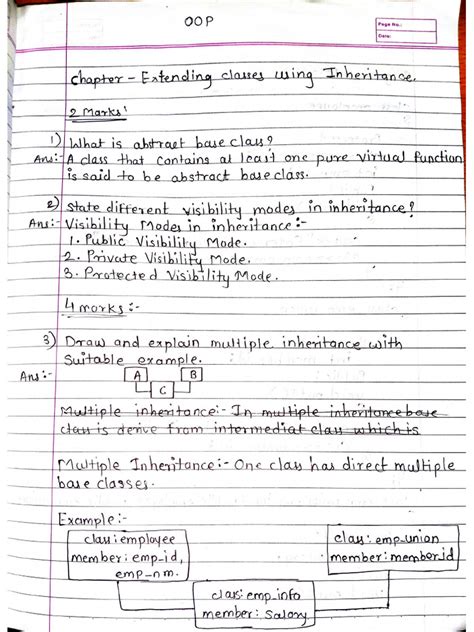 OOP
Page No.:
Date:
Chapter - Extending classes using Inheritance.
2 Marks:
1) What is abstract base class?
Ans:- A class that contains at least one pure virtual function
is said to be abstract base class.
2) State different visibility modes in inheritance?
Ans:- Visibility Modes in inheritance:-
1. Public Visibility Mode.
2. Private Visibility Mode.
3. Protected Visibility Mode.
4 marks:-
3) Draw and explain multiple inheritance with
Suitable example.
Ans:-
A B
C
Multiple inheritance:- In multiple inheritance base
class is derive from intermediat class which is
Multiple Inheritance:- One class has direct multiple
base classes.
Example:-
class: employee
member: emp_id,
emp_nm.
class: emp_union
member: member_id
class: emp_info
member: Salary